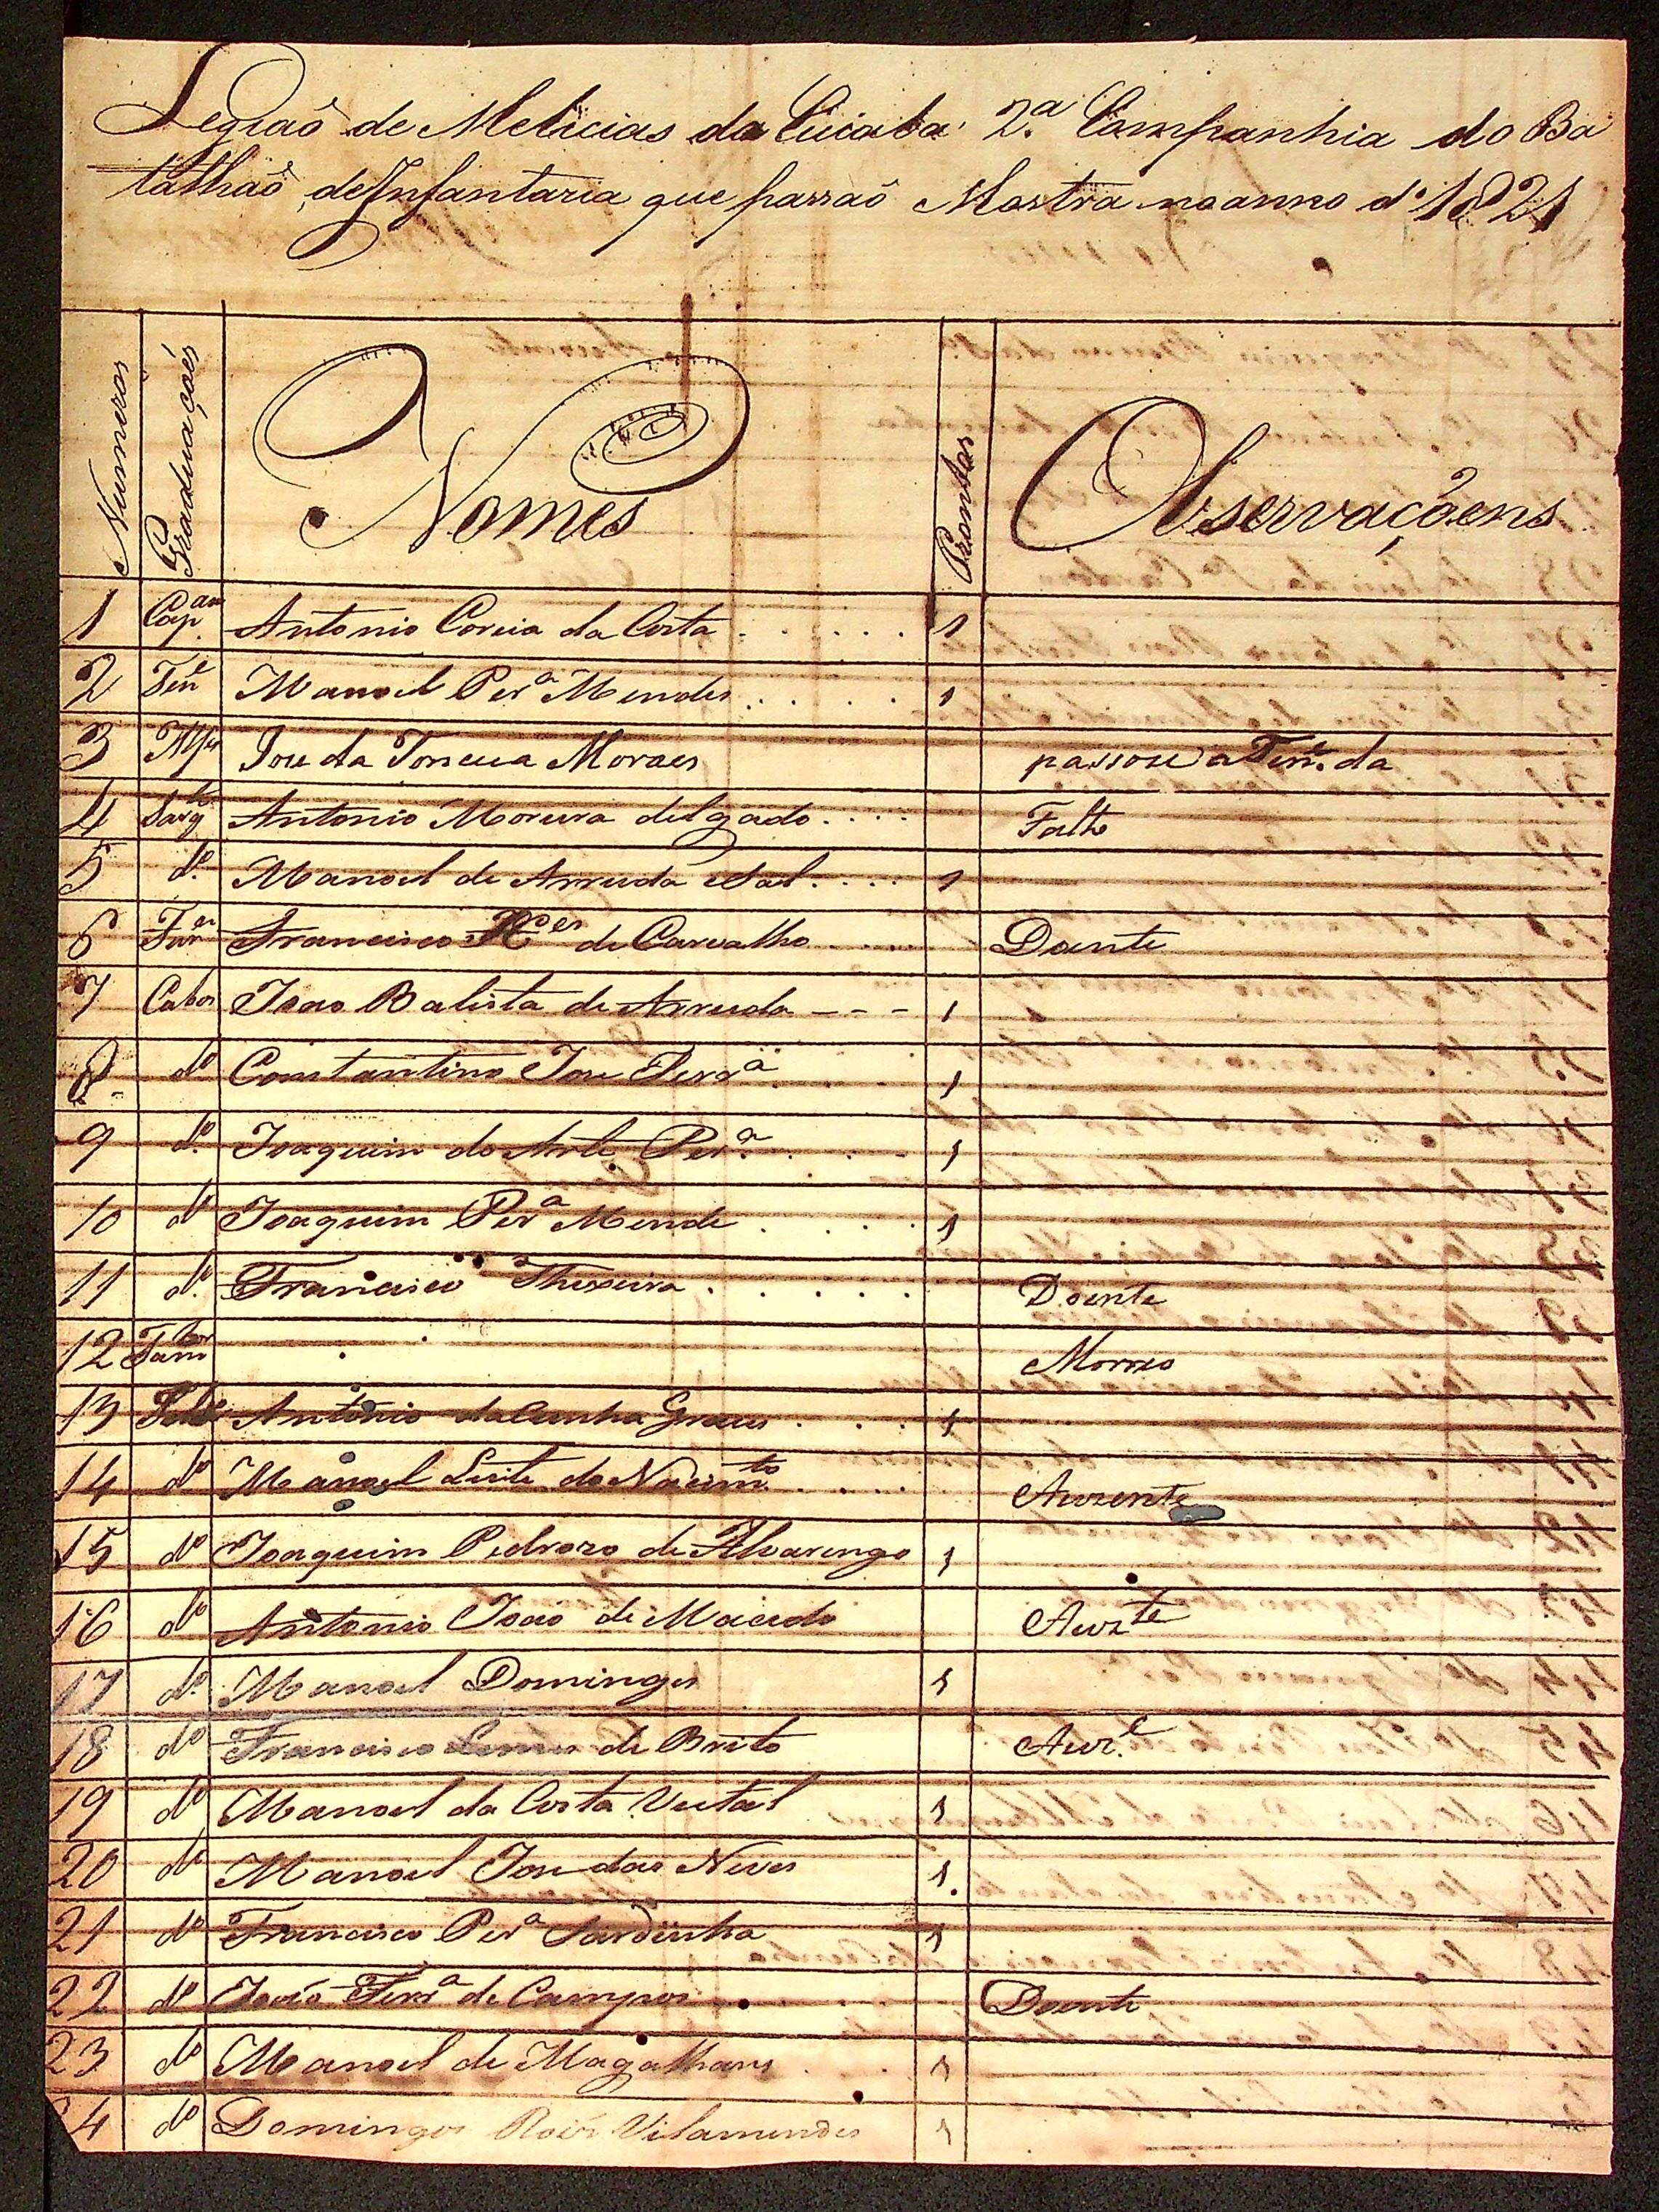 Legiaõ de Melicias do Cuiaba 2.ª Companhia do Ba
talhaõ de Infantaria que passaõ Mostra no anno d.º 1821
Numeros Graduaçoẽs Nomes Prontos Observaçoẽns
1 Cap.am Antonio Coreia da Costa 1
2 Ten.e Manoel Per.ª Mendes 1
3 Alfer Jose da Fonceca Moraes passou a Ten.e da
4 Sarg.to Antonio Moreira delgado Falto
5 d.º Manoel de Arruda e Sal 1
6 Fur.er Francisco Roẽs de Carvalho Doente
7 Cabos Joao Batista de Arruda 1
8 d.º Constantino Jose Perr.ª 1
9 d.º Joaquim do Arte Per.ª 1
10 d.º Joaquim Per.ª Mende 1
11 d.º Francisco Thexeira Doente
12 Tam.bor Morreo
13 Sold.º Antonio da Cunha 1
14 d.º Manoel Leite do Nacim.to Auzente
15 d.º Joaquim Pedrozo de Alvarengo 1
16 d.º Antonio Joaõ de Macedo Auz.te
17 d.º Manoel Domingos 1
18 d.º Francisco Lemes de Brito Auz.e
19 d.º Manoel da Costa 1
20 d.º Manoel Jose das Neves 1
21 d.º Francisco Per.ª Sardinha 1
22 d.º Joaõ Ferr.ª de Campos Doente
23 d.º Manoel de Magalhans 1
24 d.º Domingos Roiz Vilamendes 1